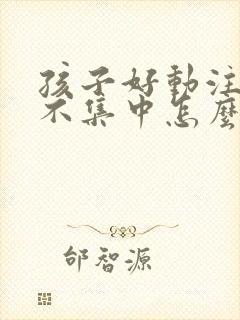 孩子好動注
不集中怎麼
邰智源